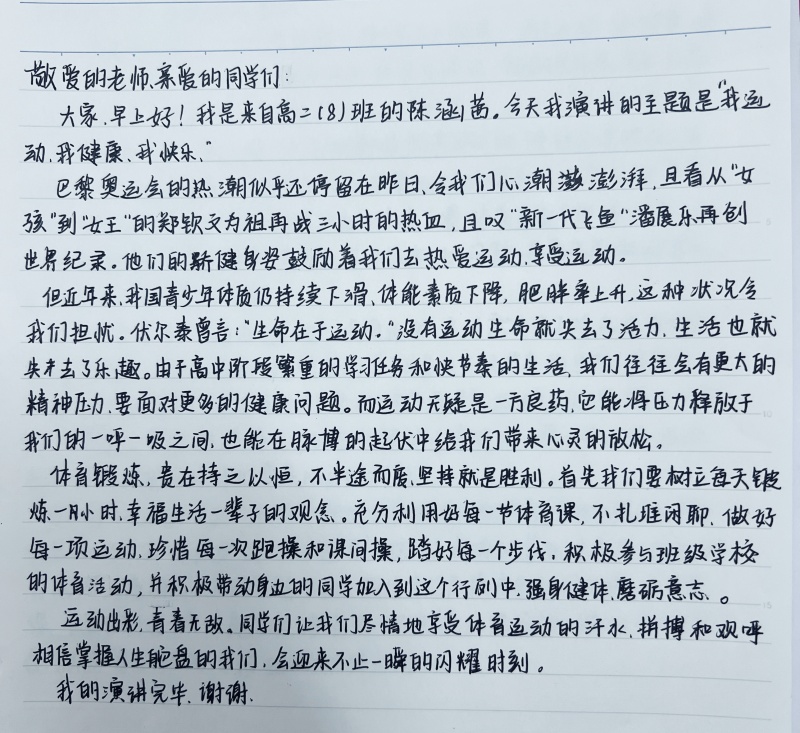 敬爱的老师、亲爱的同学们:
大家、早上好!我是来自高二(8)班的陈涵茜。今天我演讲的主题是"我运
动、我健康、我快乐、"
巴黎奥运会的热潮似乎还停留在昨日、令我们心潮澎湃,且看从"女
孩"到"女王"的郑钦文为祖再战三小时的热血,且叹"新一代飞鱼"潘展乐再创
世界纪录。他们的矫健身姿鼓励着我们去热爱运动、享受运动。
但近年来、我国青少年体质仍持续下滑、体能素质下降,肥胖率上升、这种状况令
我们担忧。伏尔泰曾言:"生命在于运动."没有运动生命就失去了活力、生活也就
失去了乐趣。由于高中阶段繁重的学习任务和快节奏的生活、我们往往会有更大的
精神压力、要面对更多的健康问题。而运动无疑是一方良药,它能将压力释放于
我们的一呼一吸之间、也能在脉搏的起伏中给我们带来心灵的放松。
体育锻炼,贵在持之以恒,不半途而废、坚持就是胜利。首先我们要树立每天锻
炼一小时、幸福生活一辈子的观念。充分利用好每一节体育课,不扎堆闲聊、做好
每一项运动、珍惜每一次跑操和课间操,踏好每一个步伐.积极参与班级学校
的体育活动,并积极带动身边的同学加入到这个行列中、强身健体、磨砺意志、。
运动出彩,青春无敌。同学们让我们尽情地享受体育运动的汗水、拼搏和欢呼
相信掌握人生舵盘的我们、会迎来不止一瞬的闪耀时刻。
我的演讲完毕、谢谢、